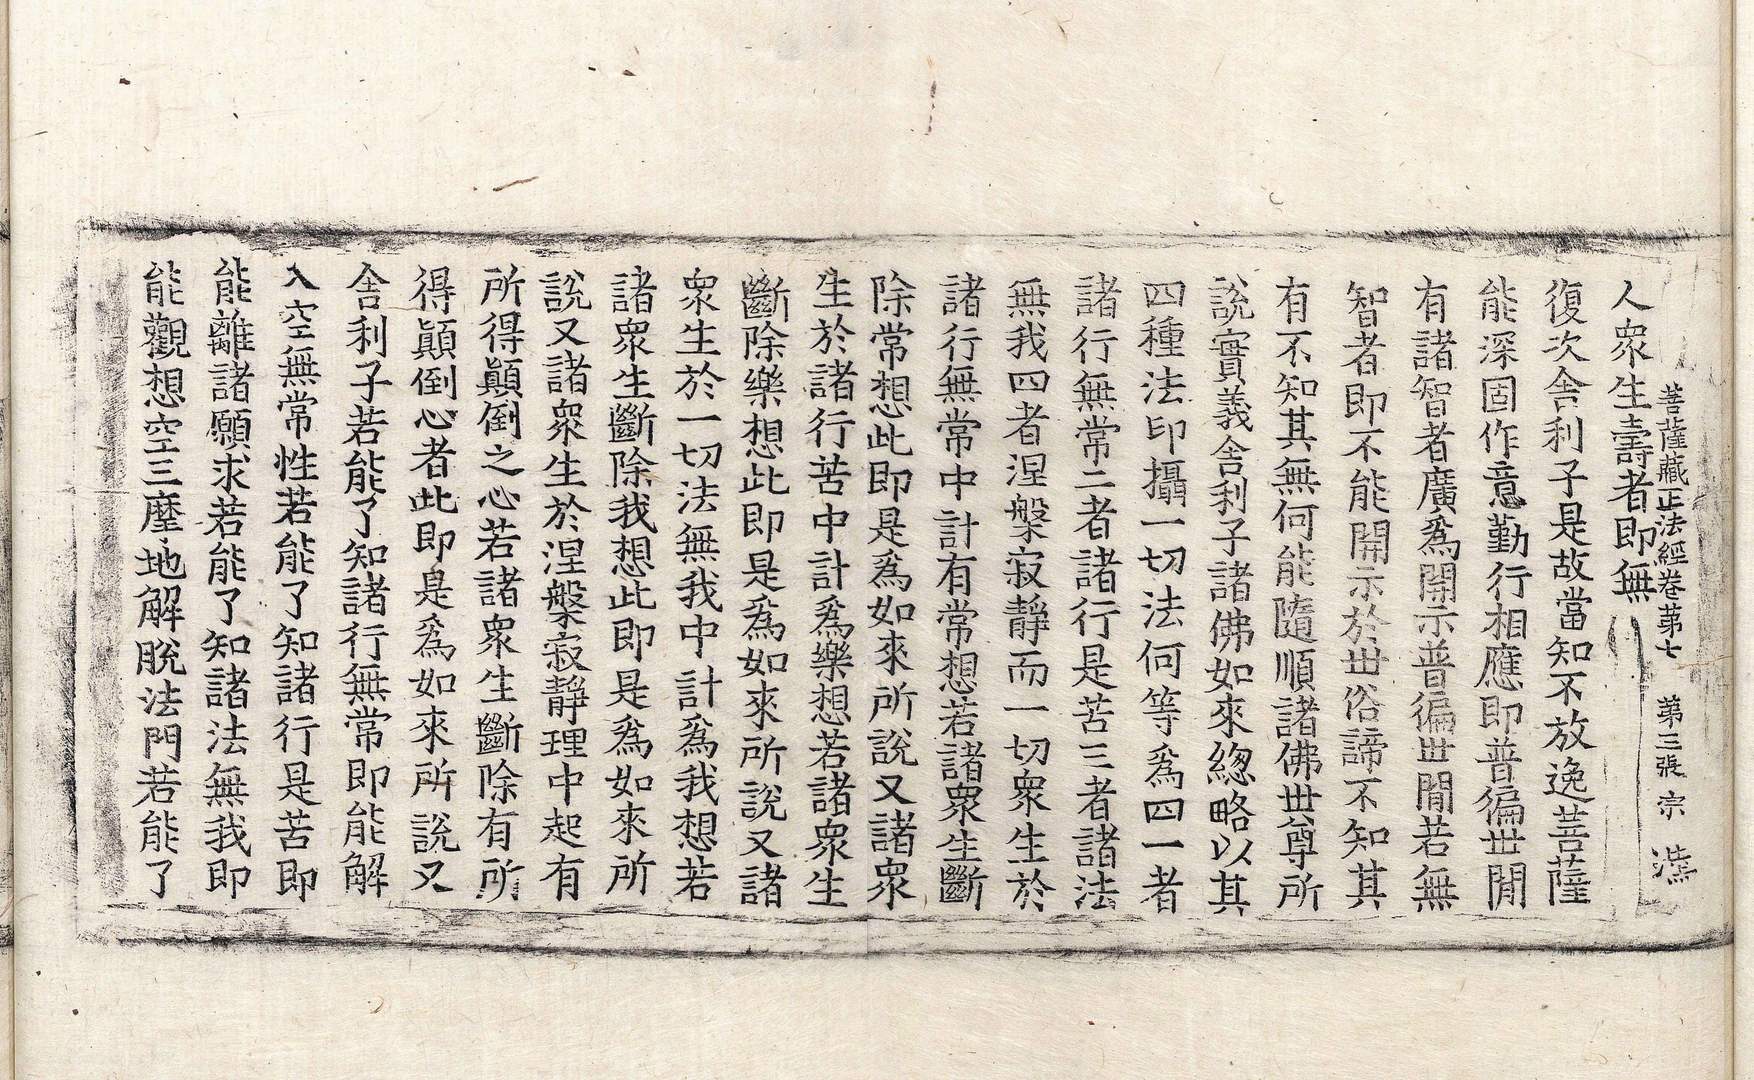 菩薩藏正法經卷第七　第三張　宗
人衆生壽者即無
復次舍利子是故當知不放逸菩薩
能深固作意勤行相應即普徧世閒
有諸智者廣爲開示普徧世閒若無
智者即不能開示於世俗諦不知其
有不知其無何能隨順諸佛世尊所
說實義舍利子諸佛如來緫略以其
四種法印攝一切法何等爲四一者
諸行無常二者諸行是苦三者諸法
無我四者涅槃寂靜而一切衆生於
諸行無常中計有常想若諸衆生斷
除常想此即是爲如來所說又諸衆
生於諸行苦中計爲樂想若諸衆生
斷除樂想此即是爲如來所說又諸
衆生於一切法無我中計爲我想若
諸衆生斷除我想此即是爲如來所
說又諸衆生於涅槃寂靜理中起有
所得顚倒之心若諸衆生斷除有所
得顚倒心者此即是爲如來所說又
舍利子若能了知諸行無常即能解
入空無常性若能了知諸行是苦即
能離諸願求若能了知諸法無我即
能觀想空三摩地解脫法門若能了